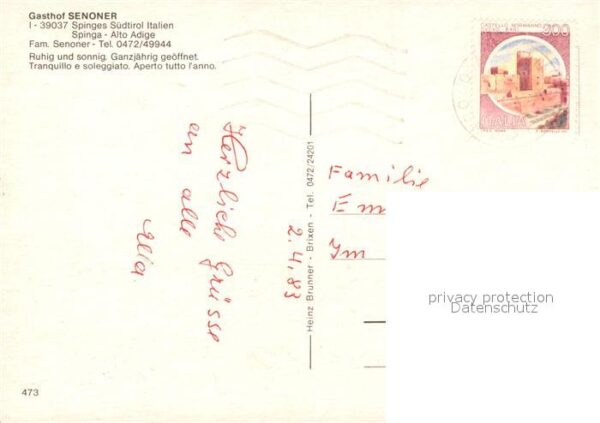 Gasthof SENONER
I - 39037 Spinges Südtirol Italien
Spinga - Alto Adige
Fam. Senoner - Tel. 0472/49944
Ruhig und sonnig. Ganzjährig geöffnet.
Tranquillo e soleggiato. Aperto tutto l'anno.
CASTELLO NORMANNO
BARI
200
ITALIA
Herzliche Grüsse
an alle
2.4.83
Heinz Brunner - Brixen - Tel. 0472/24201
Familie
Em
Im
privacy protection
Datenschutz
473